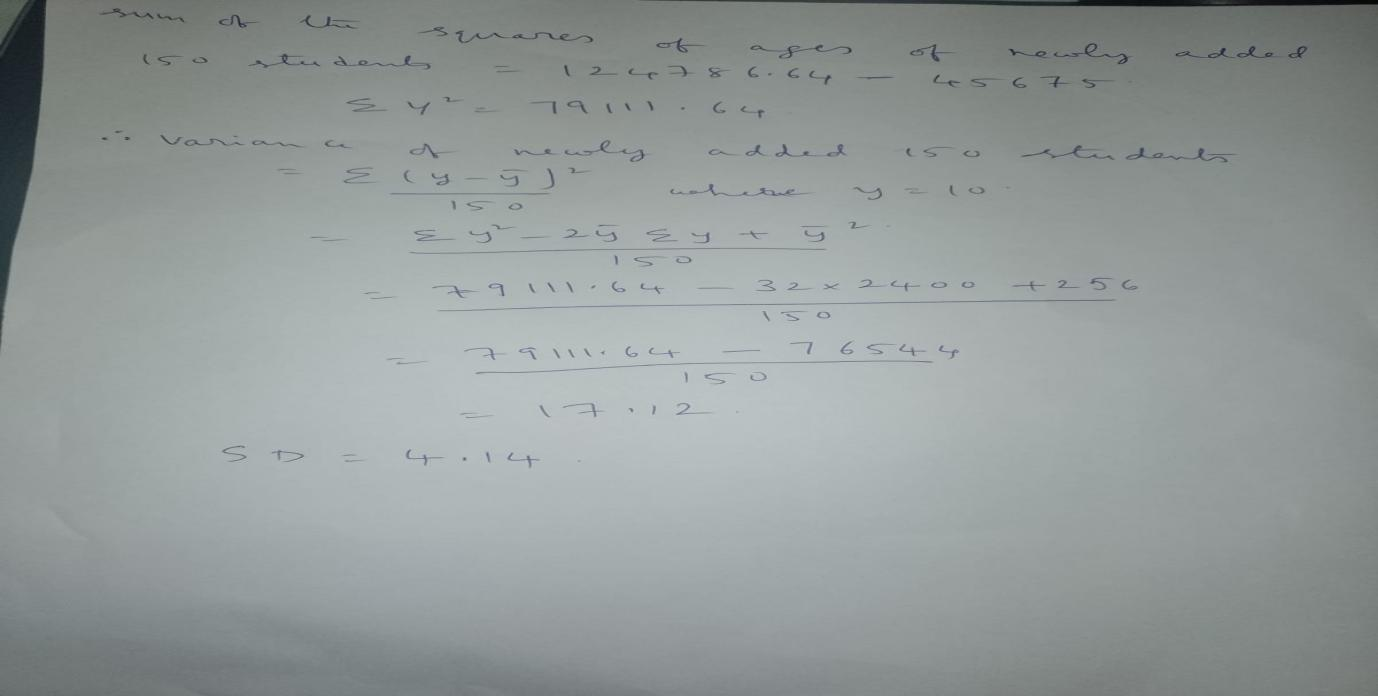 sum of the squares of ages of newly added
150 students = 124786.64 - 45675.
Σy² = 79111.64
∴ Variance of newly added 150 students
= Σ(y - ȳ)² / 150 where y = 10.
= Σy² - 2ȳ Σy + ȳ². / 150
= 79111.64 - 32 × 2400 + 256 / 150
= 79111.64 - 76544 / 150
= 17.12.
SD = 4.14.